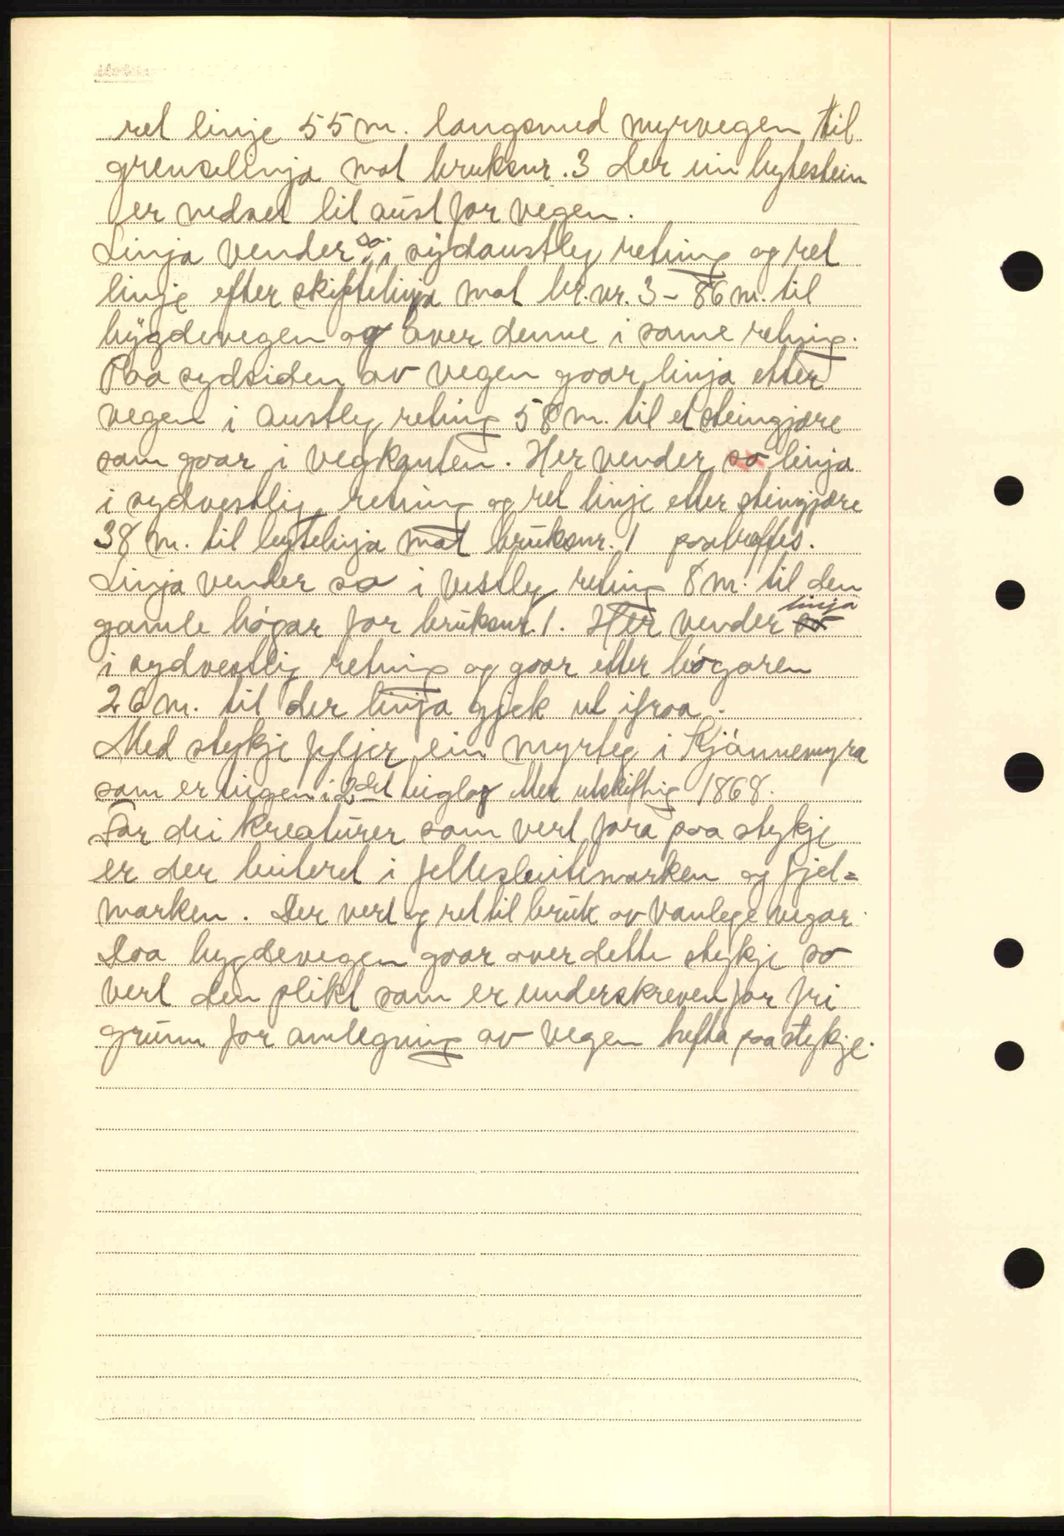 ret linje 55 m. langsmed myrvegen til
grenselinja mot bruksnr. 3 Der ein bytestein
er nedset litt aust for vegen.
Linja vender so i sydaustleg retning og ret
linje efter skiftelinja mot br.nr. 3 - 86 m. til
bygdevegen og over denne i same retning.
Paa sydsiden av vegen gaar linja etter
vegen i austleg retning 58 m. til et steingjære
som gaar i vegkanten. Her vender so linja
i sydvestlig retning og ret linje etter steingjære
38 m. til bytelinja mot bruksnr. 1
Linja vender so i vestleg retning 8 m. til den
linja
gamle høgar for bruksnr. 1. Her vender so
i sydvestlig retning og gaar etter høgaren
26 m. til der linja gjek ut ifraa.
Med stykje fylgjer ein myrteg i Kjønnemyra
som er eigen i 2det utskiftnig 1868.
For dei kreaturer som vert fora paa stykje
er der beiteret i fellesbeitemarken og fjel=
marken. Der vert og ret til bruk av vanlege vegar.
Daa bygdevegen gaar over dette stykje so
vert den plikt som er underskreven for fri
grunn for anlegning av vegen hefta paa stykje.